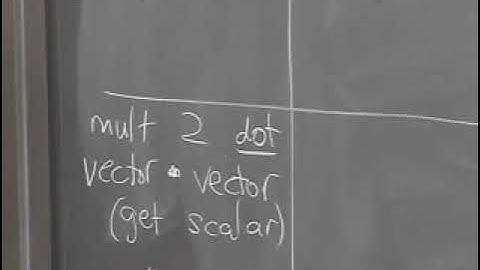 mult 2 dot
vector • vector
(get scalar)